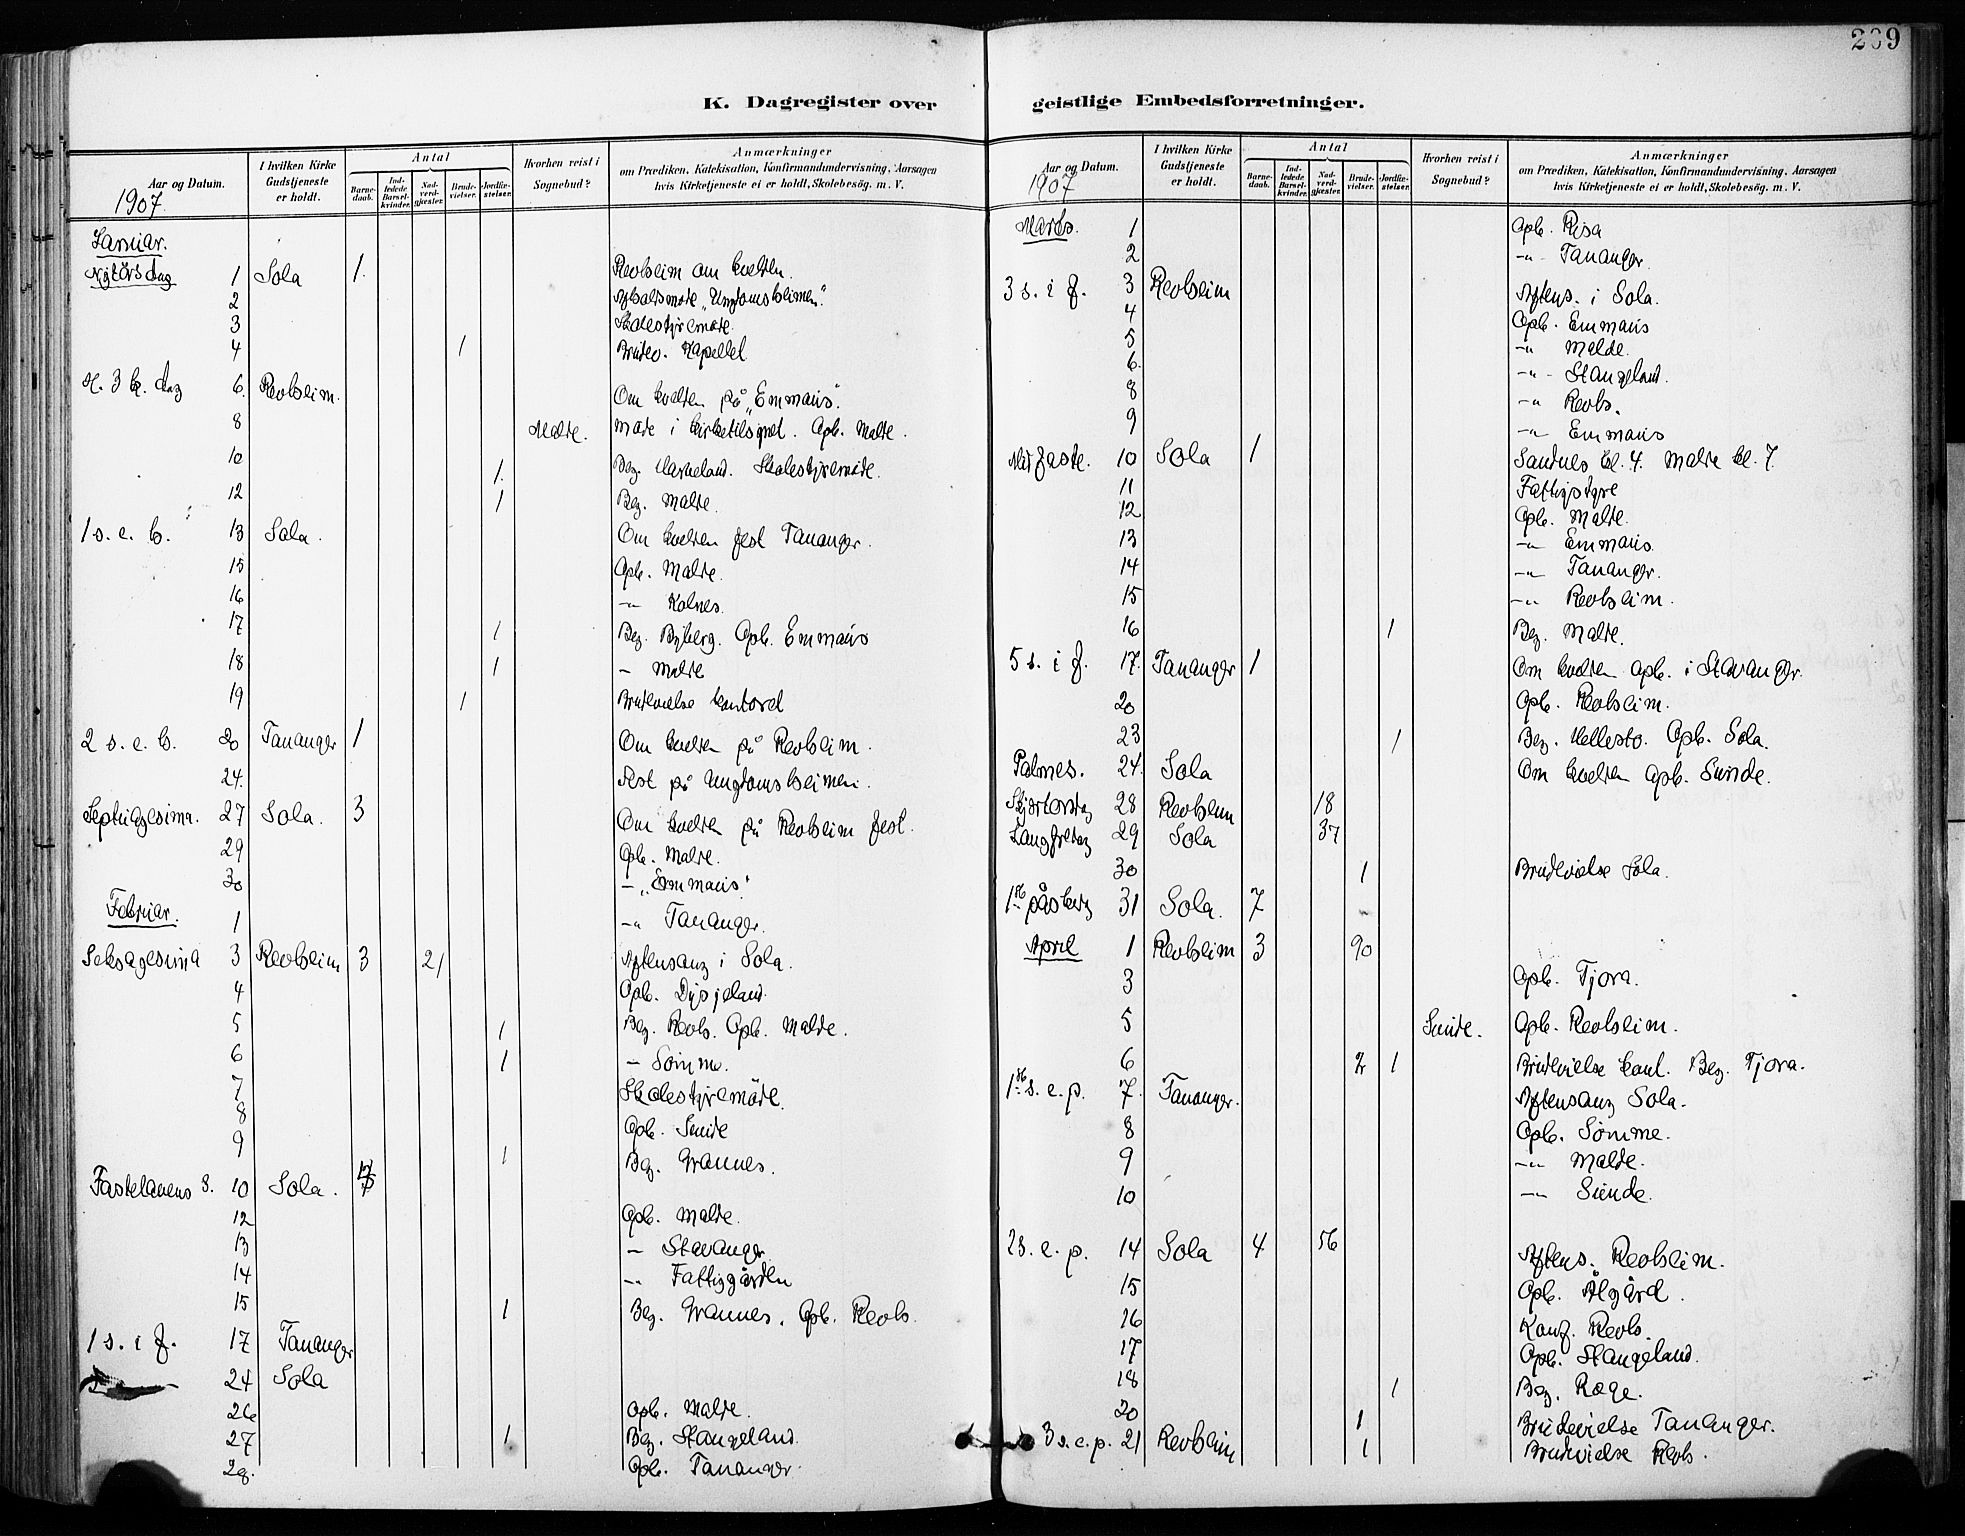 269
K. Dagregister over geistlige Embedsforretninger.
Aar og Datum. 1907.
I hvilken Kirke Gudstjeneste er holdt.
Antal
Barnedaab.
Indledede Barselkvinder.
Nadverdgjæster.
Brudevielser.
Jordfæstelser.
Hvorhen reist i Sognebud?
Anmærkninger om Prædiken, Katekisation, Konfirmandundervisning, Aarsagen hvis Kirketjeneste ei er holdt, Skolebesøg. m. V.
Januar.
Nytårsdag 1 Sola 1. Revheim om kvelden.
2 "Ungdomsheimen".
3 Skolestyremøte.
4 1 Brudev. Kapellet
H. 3 k. dag 6. Revheim. Om kvelden på "Emmaus".
8 Malde. møte i kirketilsynet. Opb. Malde.
10 1. Beg. Harveland. Skolestyremøte.
12 1 Beg. Malde.
1 s. e. h. 13 Sola. Om kvelden fest Tananger.
15 Opb. Malde.
16 -"- Kolnes.
17 1 Beg. Byberg. Opb. Emmaus
18 1 - Malde
19 1 Brudevielse kontoret
2 s. e. h. 20 Tananger 1 Om kvelden på Revheim.
24. Fest på Ungdomsheimen.
Septuagesima. 27 Sola. 3 Om kvelden på Revheim fest.
29 Opb. Malde.
30 - "Emmaus"
Februar. 1 -"- Tananger.
Seksagesima 3 Revheim 3 21 Aftensang i Sola.
4 Opb. Dysjeland.
5 1 Beg. Revh. Opb. Malde.
6 1 - Sømme.
7 Skolestyremöte.
8 Opb. Sunde
9 1 Beg. Grannes.
Fastelavens s. 10 Sola.
12 Opb. Malde.
13 - Stavanger
14 -"- Fattiggården
15 1 Beg. Grannes. Opb. Revh.
1 s. i f. 17 Tananger
24 Sola
26 Opb. Malde.
27 1 Beg. Stangeland.
28. Opb. Tananger.
Aar og Datum. 1907
I hvilken Kirke Gudstjeneste er holdt.
Antal
Barnedaab.
Indledede Barselkvinder.
Nadverdgjæster.
Brudevielser.
Jordfæstelser.
Hvorhen reist i Sognebud?
Anmærkninger om Prædiken, Katekisation, Konfirmandundervisning, Aarsagen hvis Kirketjeneste ei er holdt, Skolebesøg. m. V.
Marts. 1 Opb. Risa
2 -"- Tananger.
3 s. i f. 3 Revheim Aftens. i Sola.
4 Opb. Emmaus
5 -"- Malde.
6. -"- Stangeland.
8 -"- Revh.
9 -"- Emmaus
Midfaste. 10 Sola 1 Sandnes kl. 4. Malde kl. 7.
11 Fattigstyre
12 Opb. Malde.
13 -"- Emmaus.
14 -"- Tananger.
15 -"- Revheim.
16 1 Beg. Malde.
5 s. i f. 17. Tananger 1 Om kvelden opb. i Stavanger.
20 Opb. Revheim.
23 1 Beg. Hellestø. Opb. Sola.
Palmes. 24. Sola Om kvelden opb. Sunde.
Skjærtorsdag 28 Revheim 18
Langfredag 29 Sola 37
30 1 Brudevielse Sola.
1ste påskedag 31 Sola. 7
April 1 Revheim 3 90
3 Opb. Tjora.
5 Sunde. Opb. Revheim.
6 2 1 Brudevielse kont. Beg. Tjora.
1ste s. e. p. 7. Tananger. Aftensang Sola.
8 Opb. Sømme.
9 -"- Malde.
10 -"- Sunde.
2 s. e. p. 14 Sola 4 56 Aftens. Revheim.
15 Opb. Ålgård.
16 Konf. Revh.
17 Opb. Stangeland.
18 1 Beg. Ræge.
20 1 Brudevielse Tananger.
3 s. e. p. 21 Revheim 1 Brudevielse Revh.